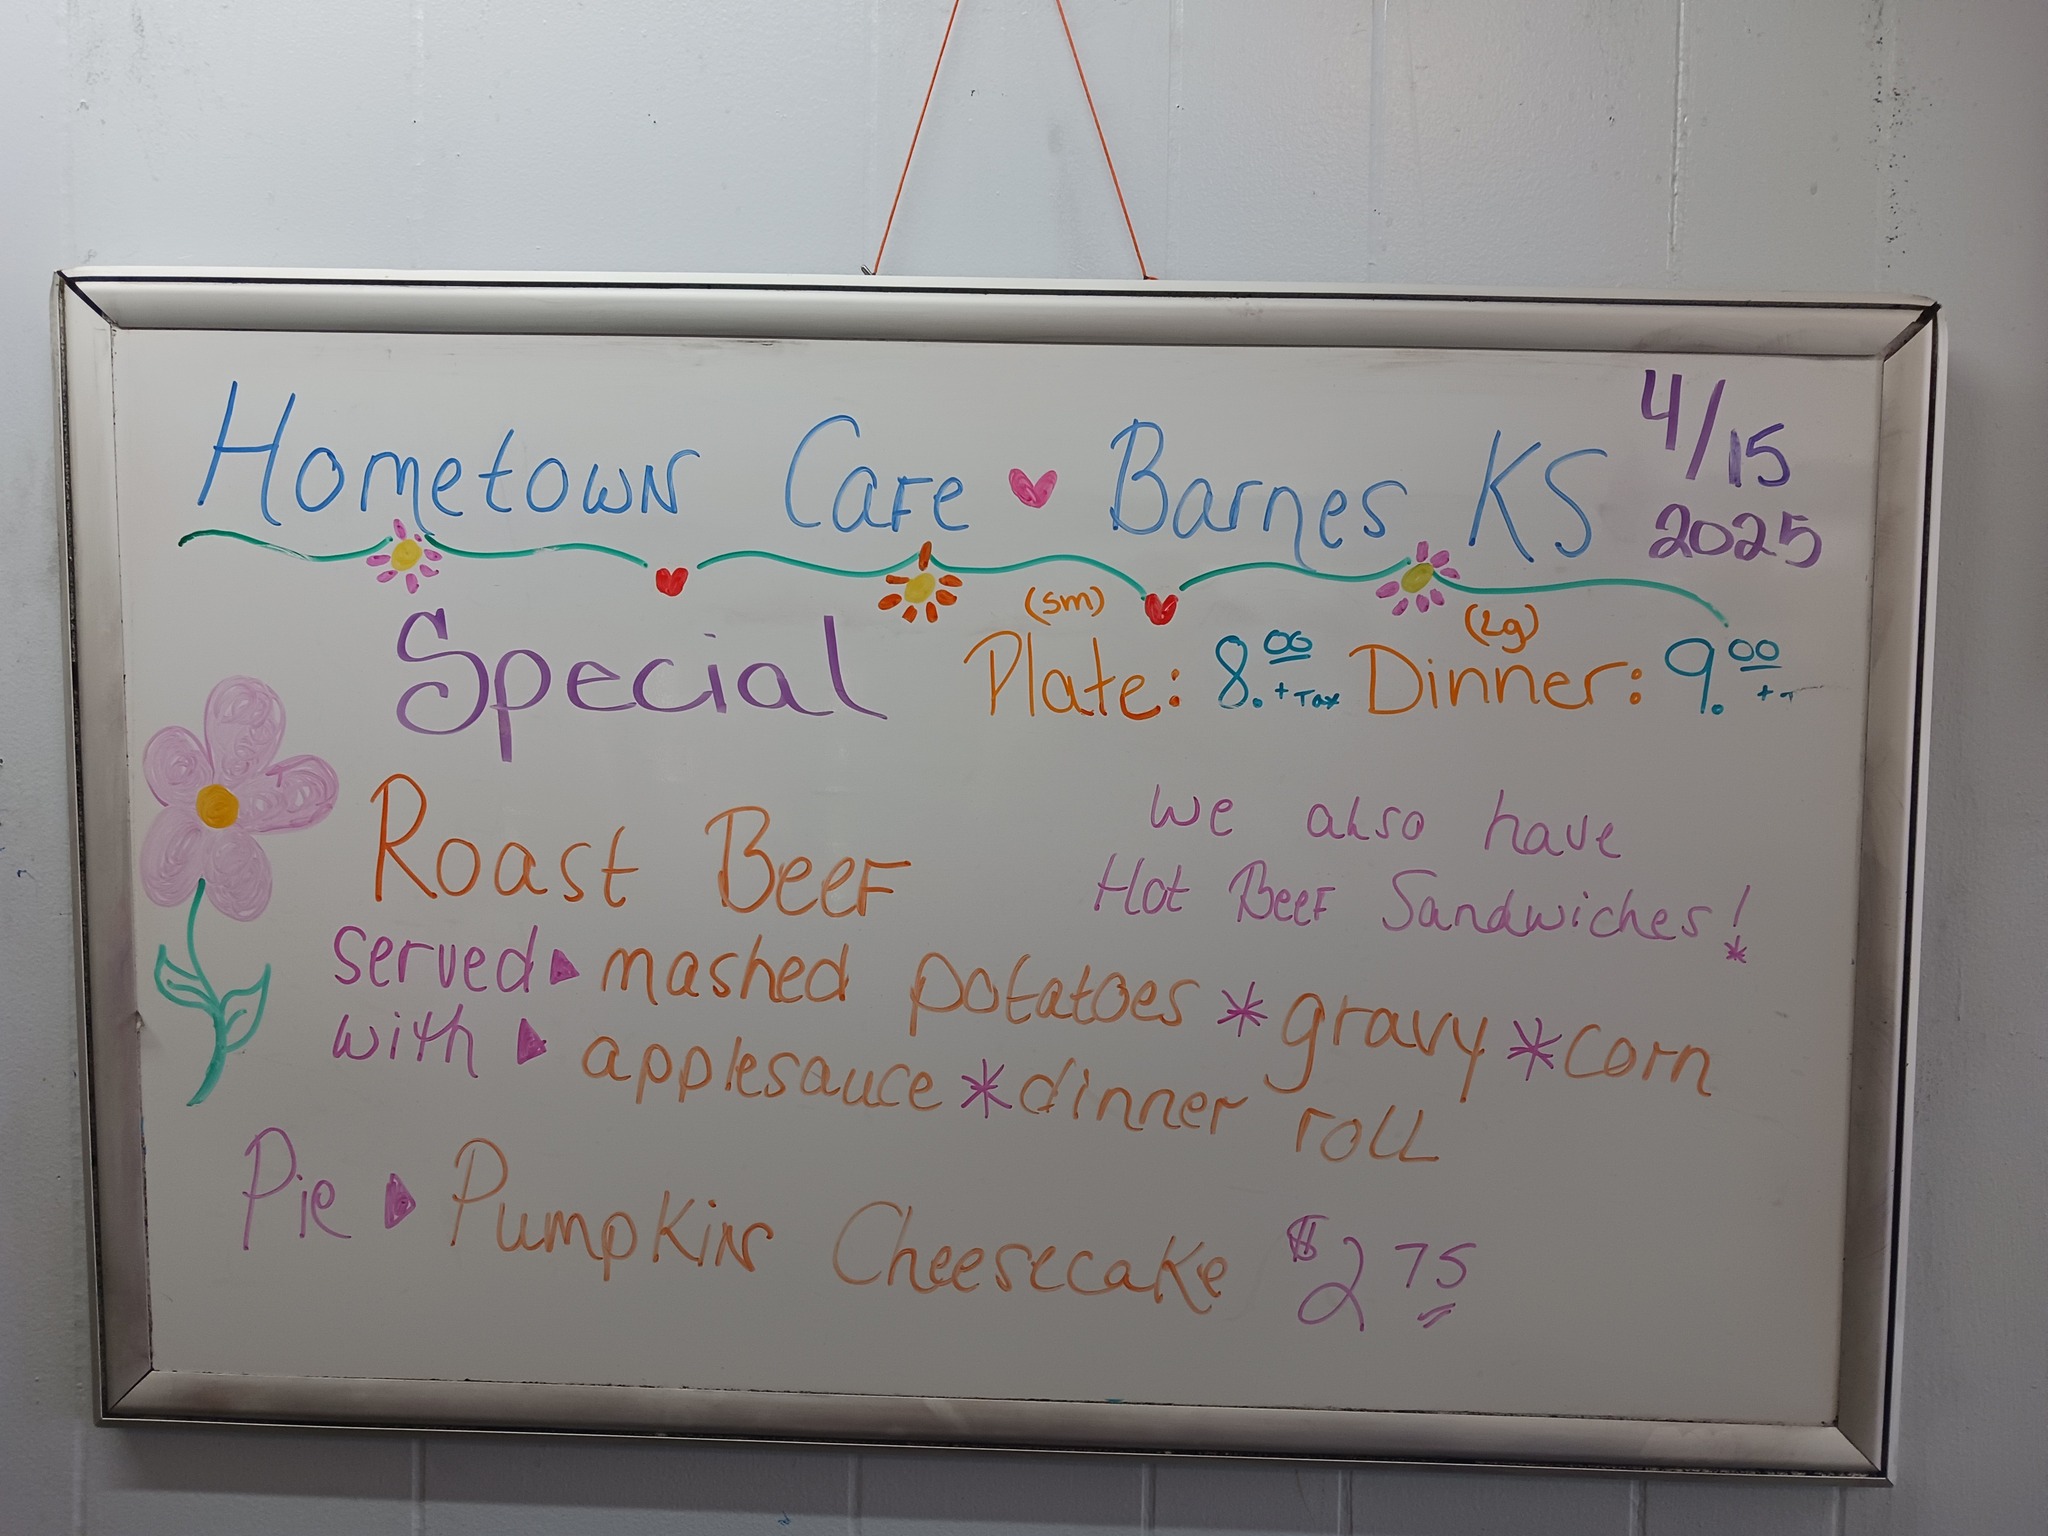 Hometown Cafe Barnes KS
4/15
2025
Special
(sm)
Plate: 8.00 + Tax
(Lg)
Dinner: 9.00 +
Roast Beef
We also have
Hot Beef Sandwiches!
served mashed potatoes * gravy * corn
with applesauce * dinner roll
Pie Pumpkin Cheesecake $2 75